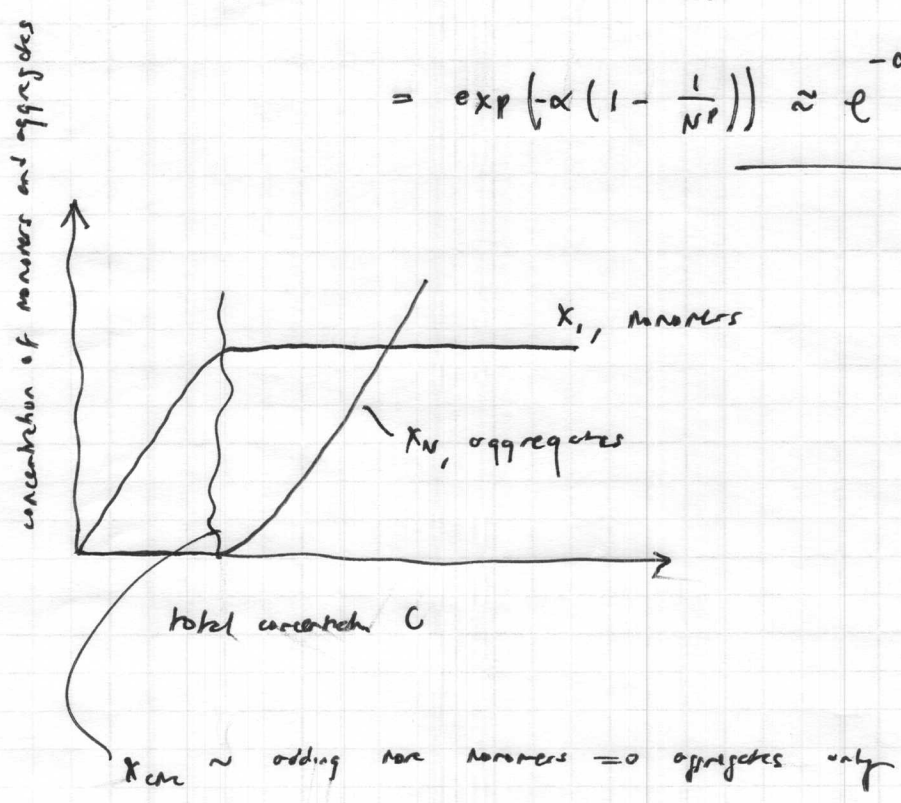 = exp (-α (1 - 1/N^p)) ≈ e^-α
concentration of monomers and aggregates
X₁, monomers
X_N, aggregates
total concentration C
X_cmc ~ adding more monomers => aggregates only